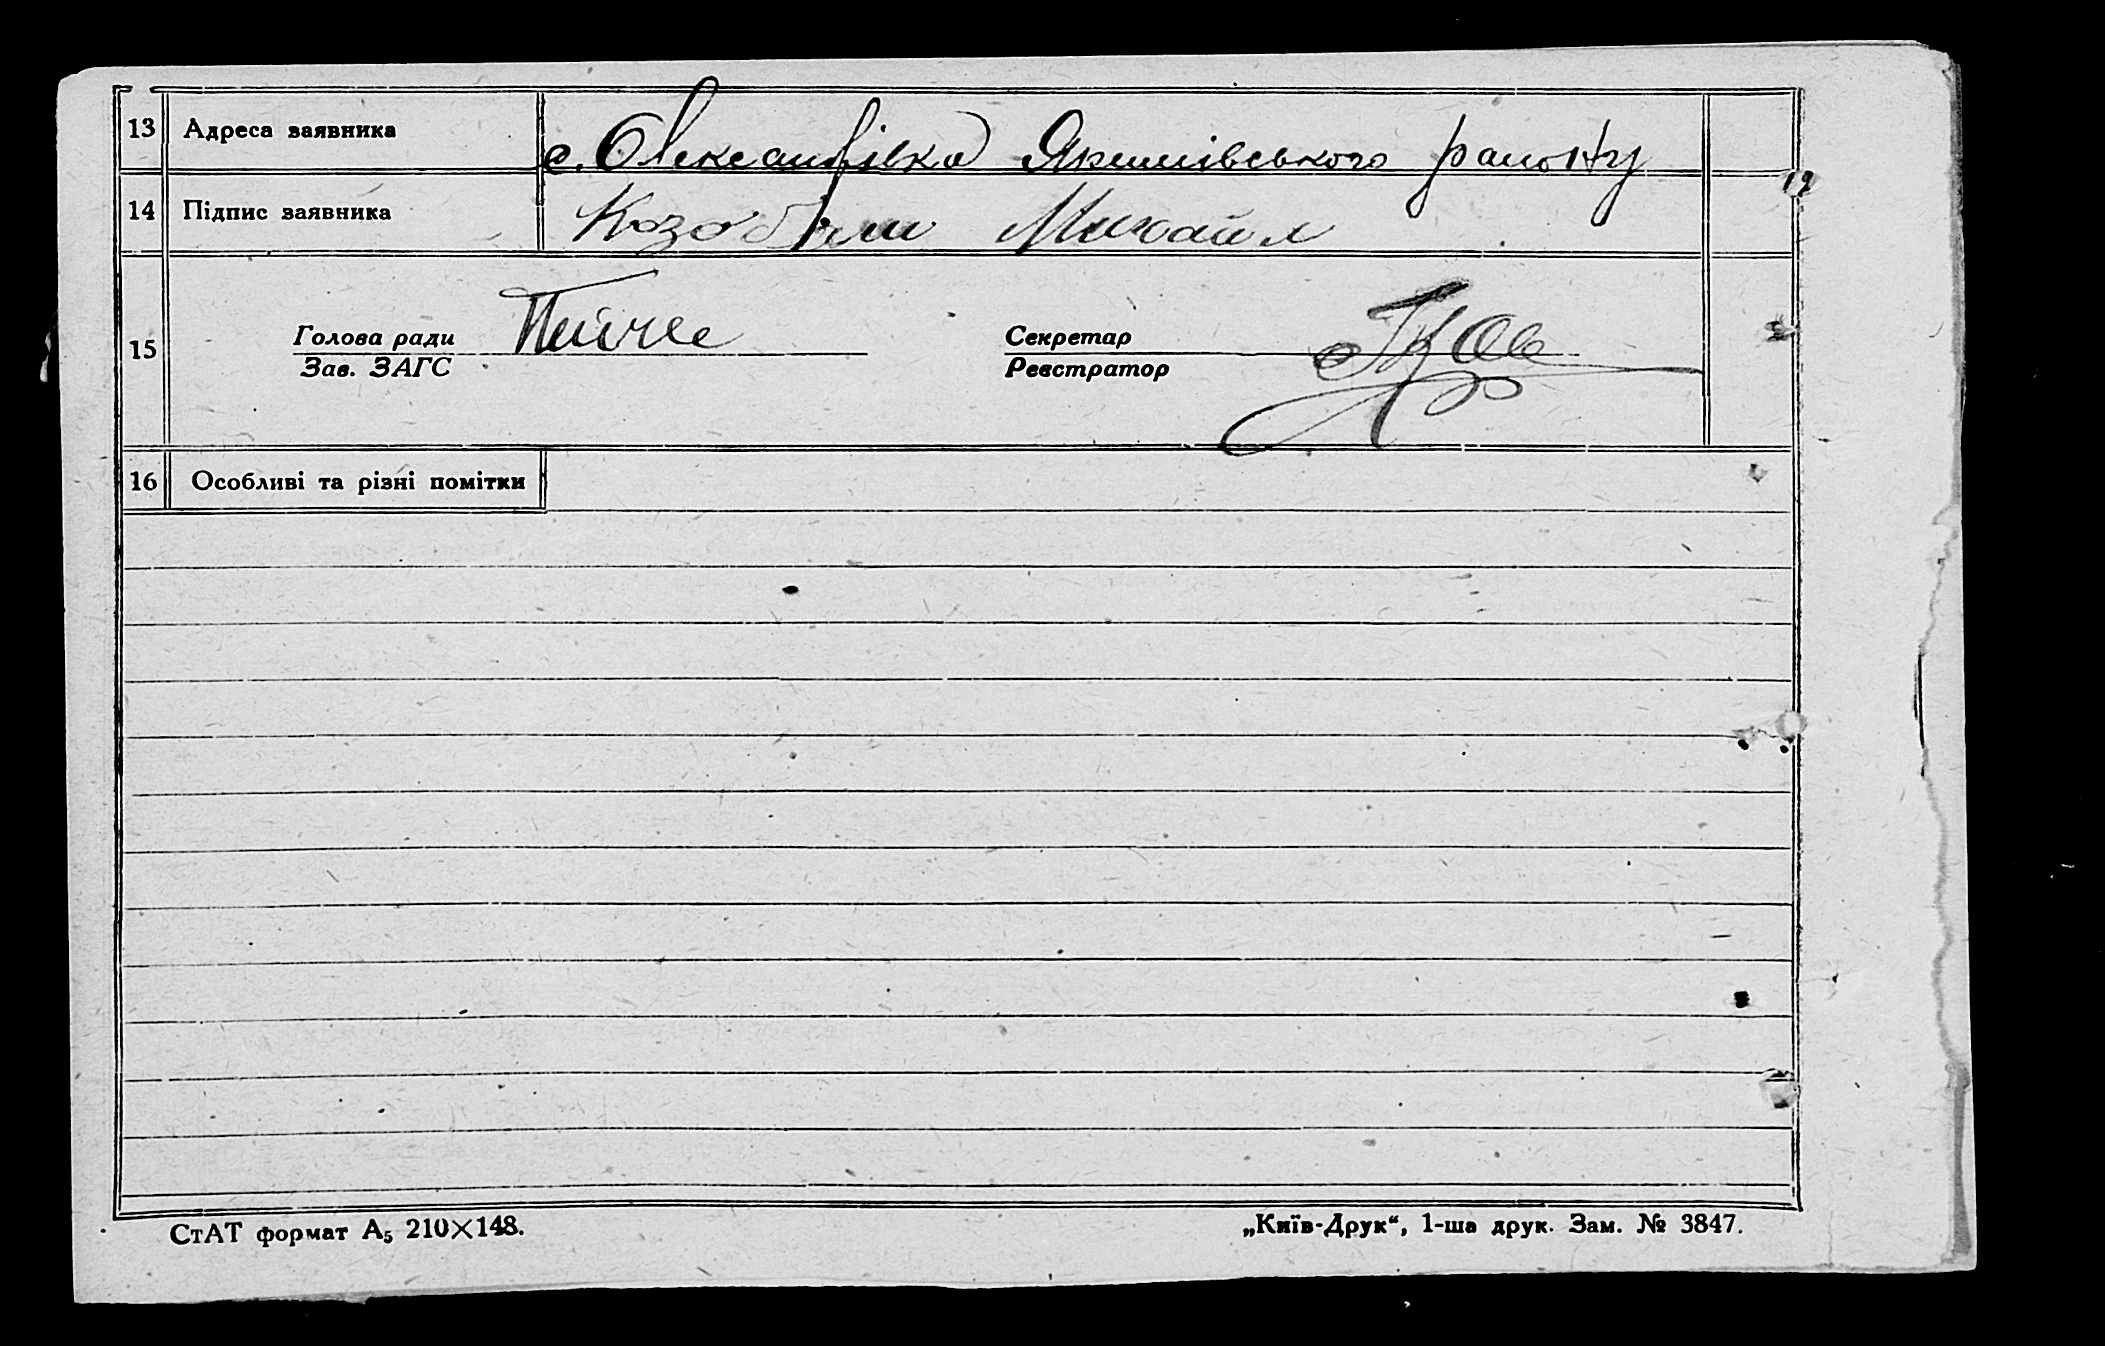 13 Адреса заявника с. Олександрівка Якимівського району
14 Підпис заявника Михайл
15 Голова ради Секретар
Зав. ЗАГС Реєстратор
16 Особливі та різні помітки
СтАТ формат А₅ 210×148. „Київ-Друк“, 1-ша друк. Зам. № 3847.